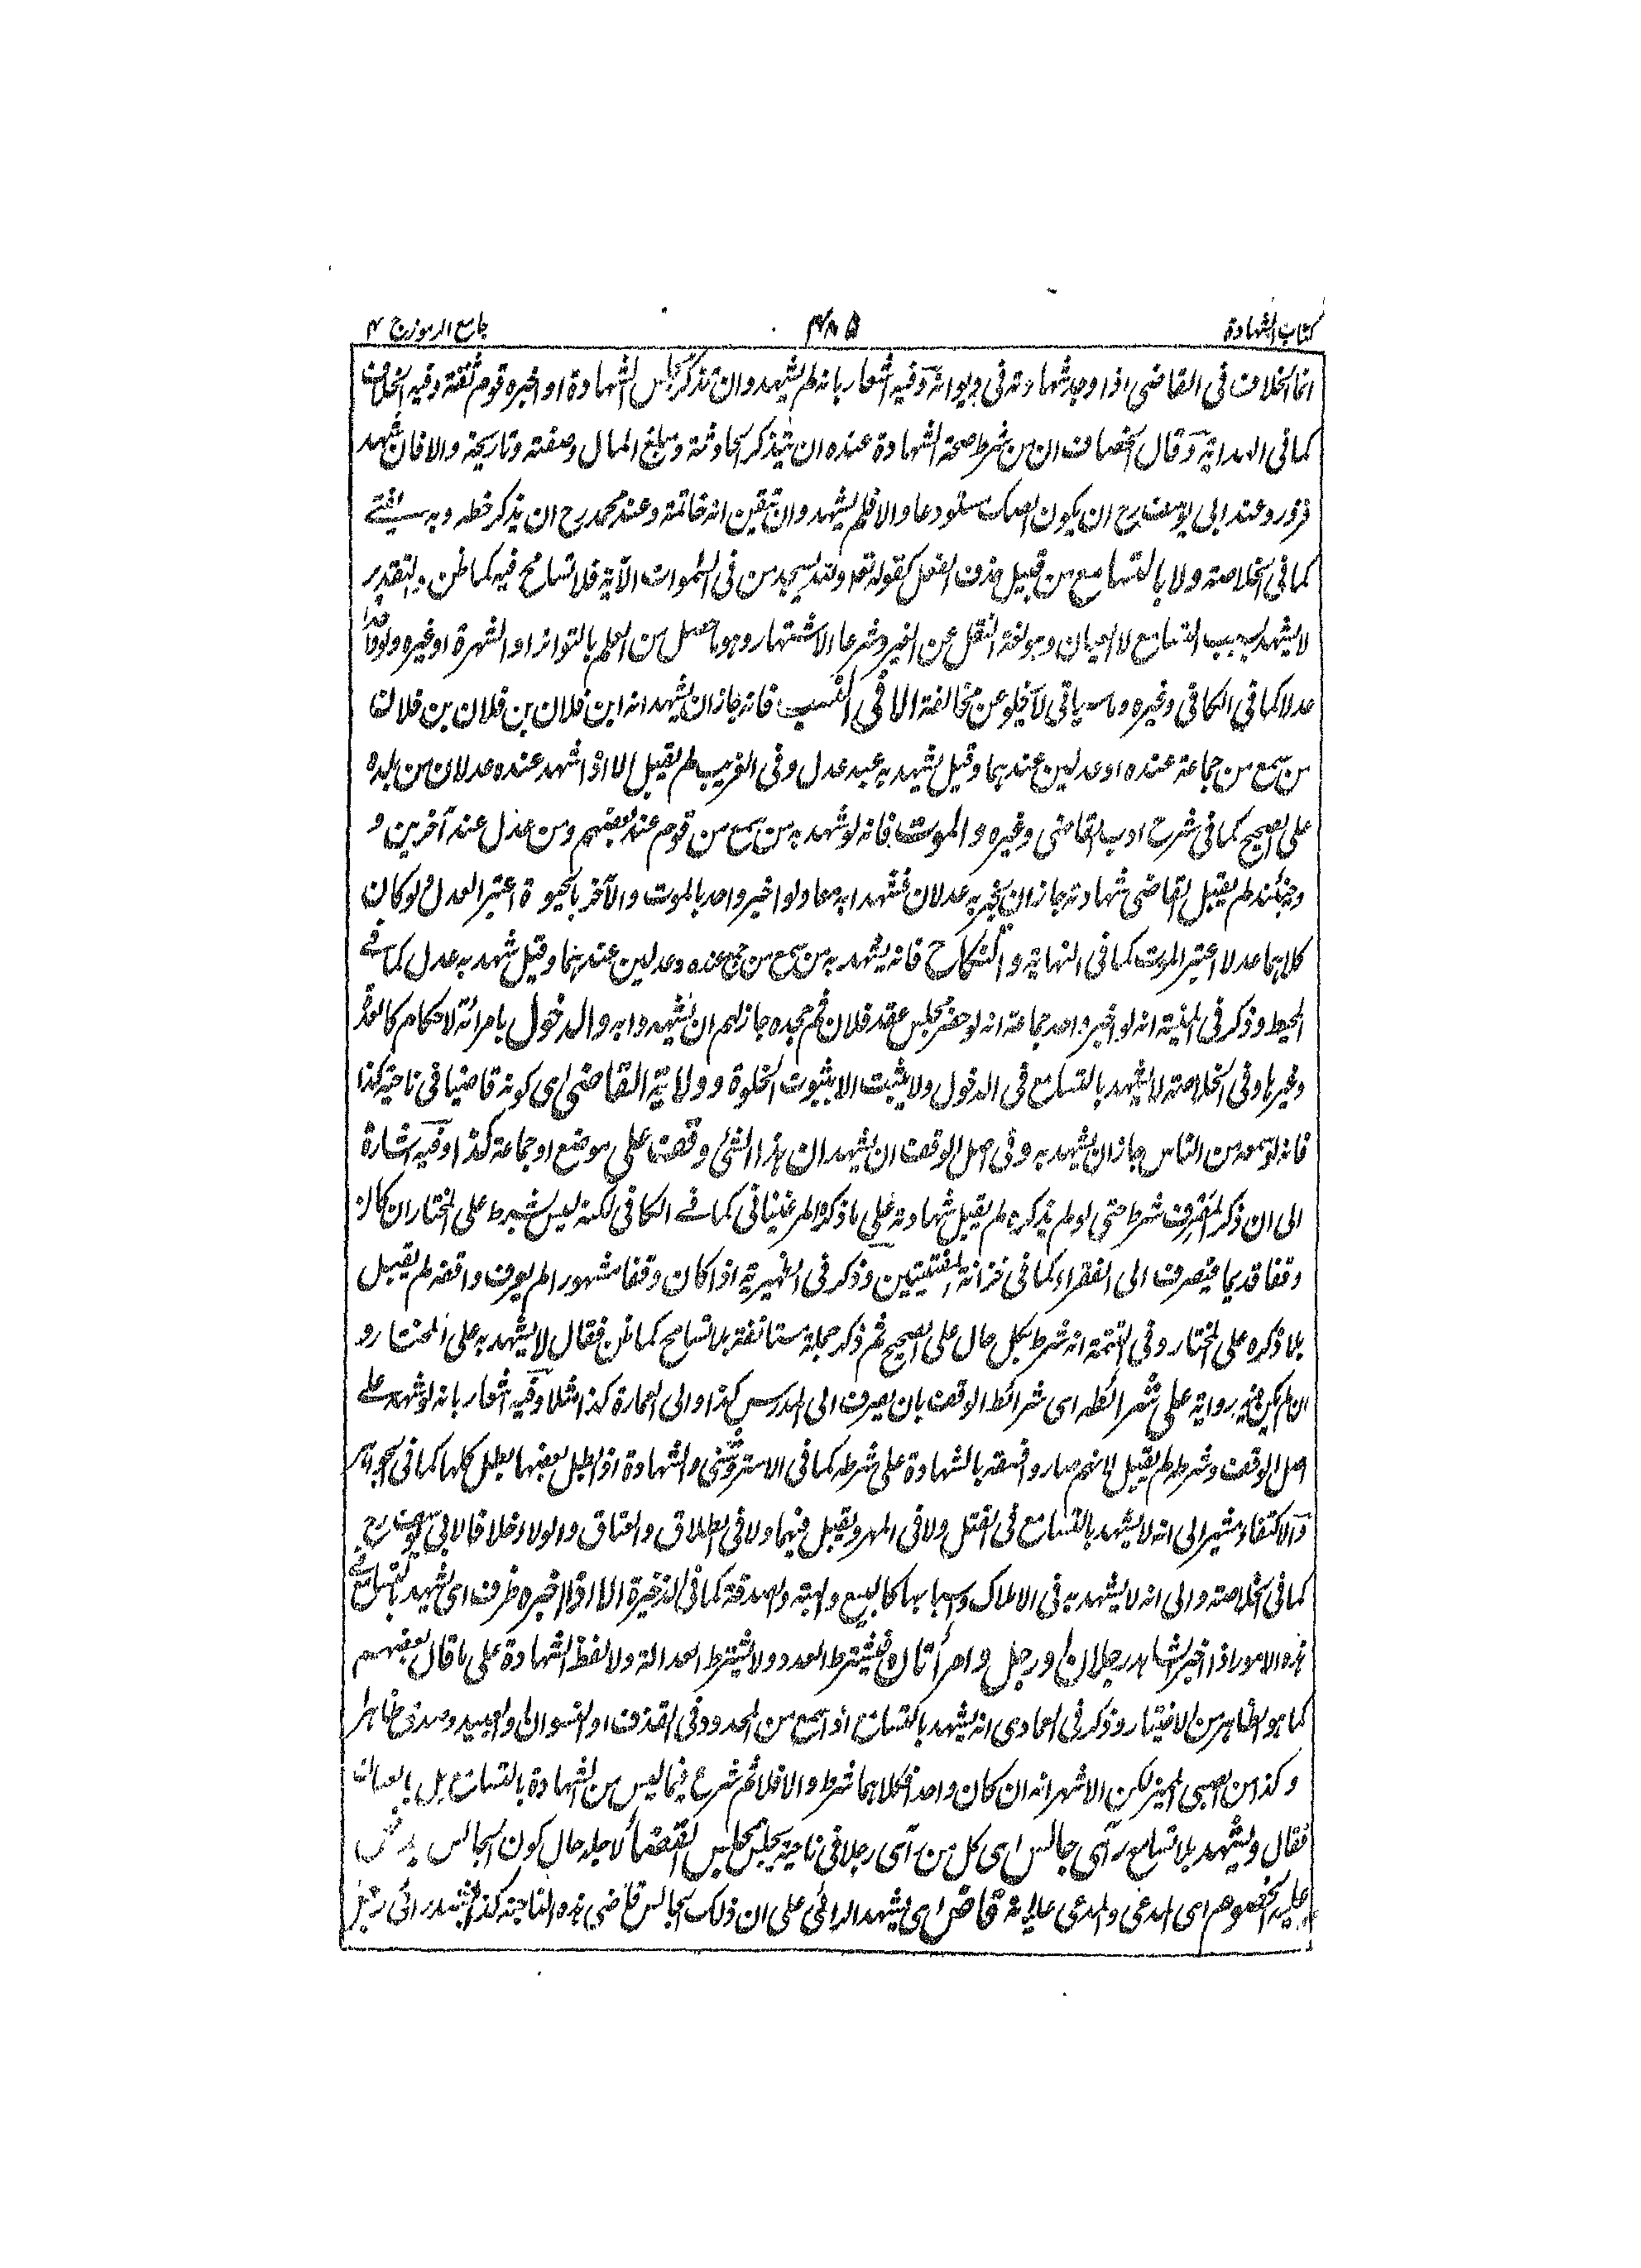 كتاب الشهادة ۴۸۵ جامع الرموز ج ۴
انما الخلاف فى القاضى اذا وجد شهادته فى ديوانه وفيه اشعار بانه لم يشهد وان تذكر مجلس الشهادة او اخبره قوم ثقة وفيه الخلاف
كما فى الهداية وقال الخصاف ان من شرط صحة الشهادة عنده ان يتذكر الحادثة ومبلغ المال وصفته وتاريخه والا فان شهد
فزور وعند ابى يوسف رح ان يكون الصك مستودعا والا فلم يشهد وان تيقن انه خاتمه وعند محمد رح ان يذكر خطه وبه يفتے
كما فى الخلاصة ولا بالتسامع من قبيل حذف الفعل كقوله تعه ولله يسجد من فى السموات الآية فلا تسامح فيه كما ظن والتقدير
لا يشهد بسبب التسامع لا العيان وهو لغة النقل عن الغير وشرعا الاشتهار وهو ما حصل من العلم بالتواتر او الشهرة او غيره ولو واحدا
عدلا كما فى الكافى وغيره وما سياتى لا يخلو عن مخالفة الا فى النسب فانه جاز ان يشهد انه ابن فلان بن فلان بن فلان
من سمع من جماعة عنده او عدلين عندهما وقيل يشهد به عبد عدل وفى الغريب لم يقبل الا اذا شهد عنده عدلان من بلده
على الصحيح كما فى شرح ادب القاضى وغيره والموت فانه لو شهد به من سمع من قوم عند بعضهم ومن عدل عند آخرين و
وحينئذ لم يقبل القاضى شهادته جاز ان يخبر به عدلان فشهدا به معا ولو اخبر واحد بالموت والآخر بالحيوة اعتبر العدل ولو كان
كلاهما عدلا اعتبر الموت كما فى النهاية والنكاح فانه يشهد به من سمع من جمع عنده وعدلين عندهما وقيل شهد به عدل كما فے
المحيط وذكر فى المنية انه لو اخبر واحد جماعة انه لو حضر مجلس عقد فلان ثم جحده جاز لهم ان يشهدوا به والدخول بامرأته لاحكام كالعدة
وغيرها وفى الخلاصة لا يشهد بالتسامع فى الدخول ولا يثبت الا بثبوت الخلوة وولاية القاضى اى كونه قاضيا فى ناحية كذا
فانه لو سمعه من الناس جاز ان يشهد به وفى اصل الوقف ان يشهد ان هذا الشئ وقف على موضع او جماعة كذا وفيه اشارة
الى ان ذكر المصرف شرط حتى لو لم يذكره لم يقبل شهادته على ما ذكره المرغينانى كما فے الكافى لكنه ليس بشرط على المختار ان كان
وقفا قديما فيصرف الى الفقراء كما فى خزانة المفتيين وذكر فى الظهيرية اذا كان وقفا مشهورا لم يعرف واقفه لم يقبل
بلا ذكره على المختار وفى التتمة انه شرط بكل حال على الصحيح ثم ذكر جملة مستانفة بلا تسامح كما ظن فقال لا يشهد به على المختار و
ان لم يكن فيه رواية على شرائطه اى شرائط الوقف بان يصرف الى المدرس كذا والى العمارة كذا مثلا وفيه اشعار بانه لو شهد علے
اصل الوقف وشرطه لم يقبل لانهم صاروا فسقة بالشهادة على شرطه كما فى الاستروشنى والشهادة اذا بطل بعضها بطل كلها كما فى الجواهر
والاكتفاء مشير الى انه لا يشهد بالتسامع فى القتل ولا فى المهر ويقبل فيهما ولا فى الطلاق والعتاق والولاء خلافا لابى يوسف رح
كما فى الخلاصة والى انه لا يشهد به فى الاملاك واسبابها كالبيع والهبة والصدقة كما فى الذخيرة الا اذا اخبره ظرف اى يشهد بالتسامع فے
هذه الامور اذا اخبر الشاهد رجلان او رجل وامرأتان فيشترط العدد ولا يشترط العدالة ولا لفظ الشهادة على ما قال بعضهم
كما هو الظاهر من الاختيار وذكر فى العمادى انه يشهد بالتسامع اذا سمع من المحدود فى القذف او النسوان والعبيد وصدق ظاهرا
وكذا من الصبى المميز لكن الاشهر انه ان كان واحدا فكلاهما شرط والا فلا ثم شرع فيما ليس من الشهادة بالتسامع بل بالعيان
فقال ويشهد بلا تسامع رآى جالس اى كل من رآى رجلا فى ناحية يجلس مجلس القضاء لاجله حال كون الجالس يدخل
عليه الخصوم اى المدعى والمدعى عليه انه قاض اى يشهد الرائى على ان ذلك الجالس قاضى هذه الناحية كذا يشهد رائى